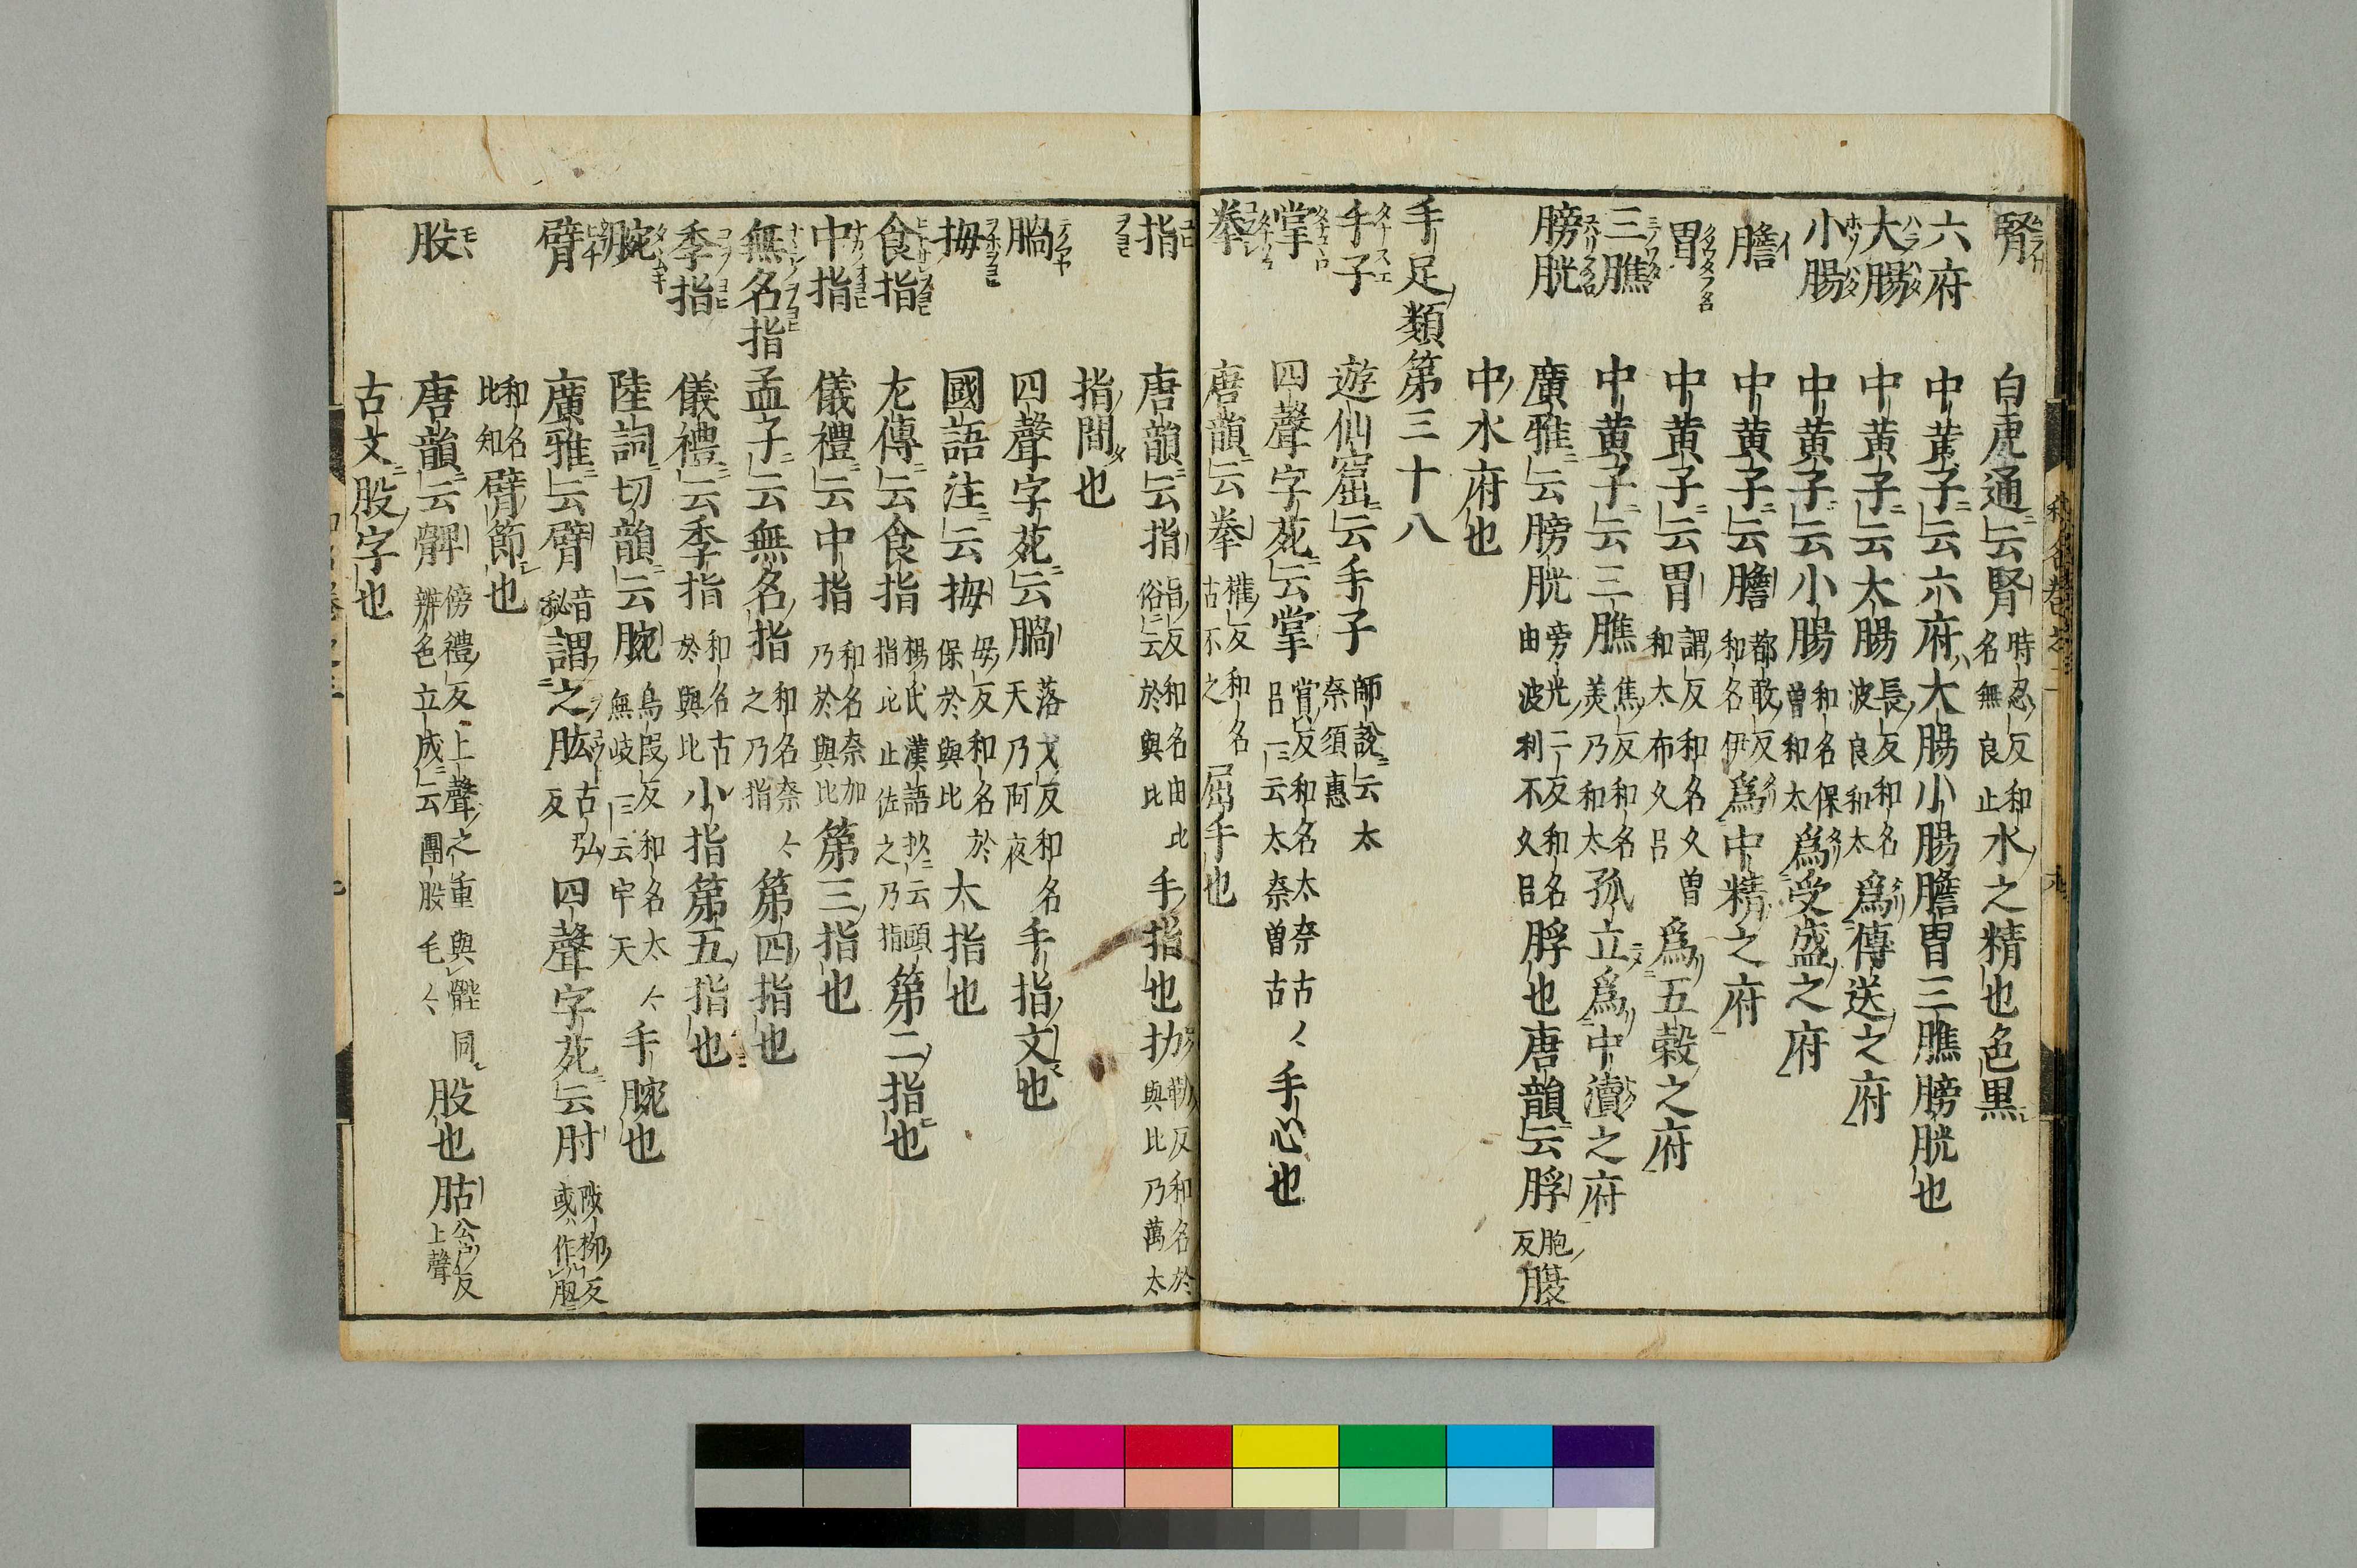 腎 白虎通云腎時忍反和名無良止水之精也色黒
六府 中黄子云六府大腸小腸膽胃三膲膀胱也
大腸 中黄子云大腸長反和名波良和太為傳送之府
小腸 中黄子云小腸和名保曽和太為受盛之府
膽 中黄子云膽都敢反和名伊為中精之府
胃 中黄子云胃謂反和名久曽和太布久呂為五穀之府
三膲 中黄子云三膲焦反和名美乃和太孤立為中瀆之府
膀胱 廣雅云膀胱旁光二反和名由波利不久呂脬也唐韻云脬胞反
中水府也
手足類第三十八
手子 遊仙窟云手子師説云太奈須恵
掌 四聲字苑云掌賞反和名太奈古古呂一云太奈曽古手心也
拳 唐韻云拳權反和名古不之屈手也
指 唐韻云指旨反和名由比俗云於與比手指也扐勒反和名於與比乃萬太
指間也
腡 四聲字苑云腡落戈反和名天乃阿夜手指文也
拇 國語注云拇母反和名於保於與比大指也
食指 左傳云食指楊氏漢語抄云頭指比止佐之乃指第二指也
中指 儀禮云中指和名奈加乃於與比第三指也
無名指 孟子云無名指和名奈々之乃指第四指也
季指 儀禮云季指和名古於與比小指第五指也
腕 陸詞切韻云腕烏段反和名太々無岐一云宇天手腕也
臂 廣雅云臂音秘謂之肱古弘反四聲字苑云肘陟柳反或作
和名比知臂節也
唐韻云髀傍禮反上聲之重與䏶同辨色立成云團股毛々股也股公戸反上聲
股
古文股字也